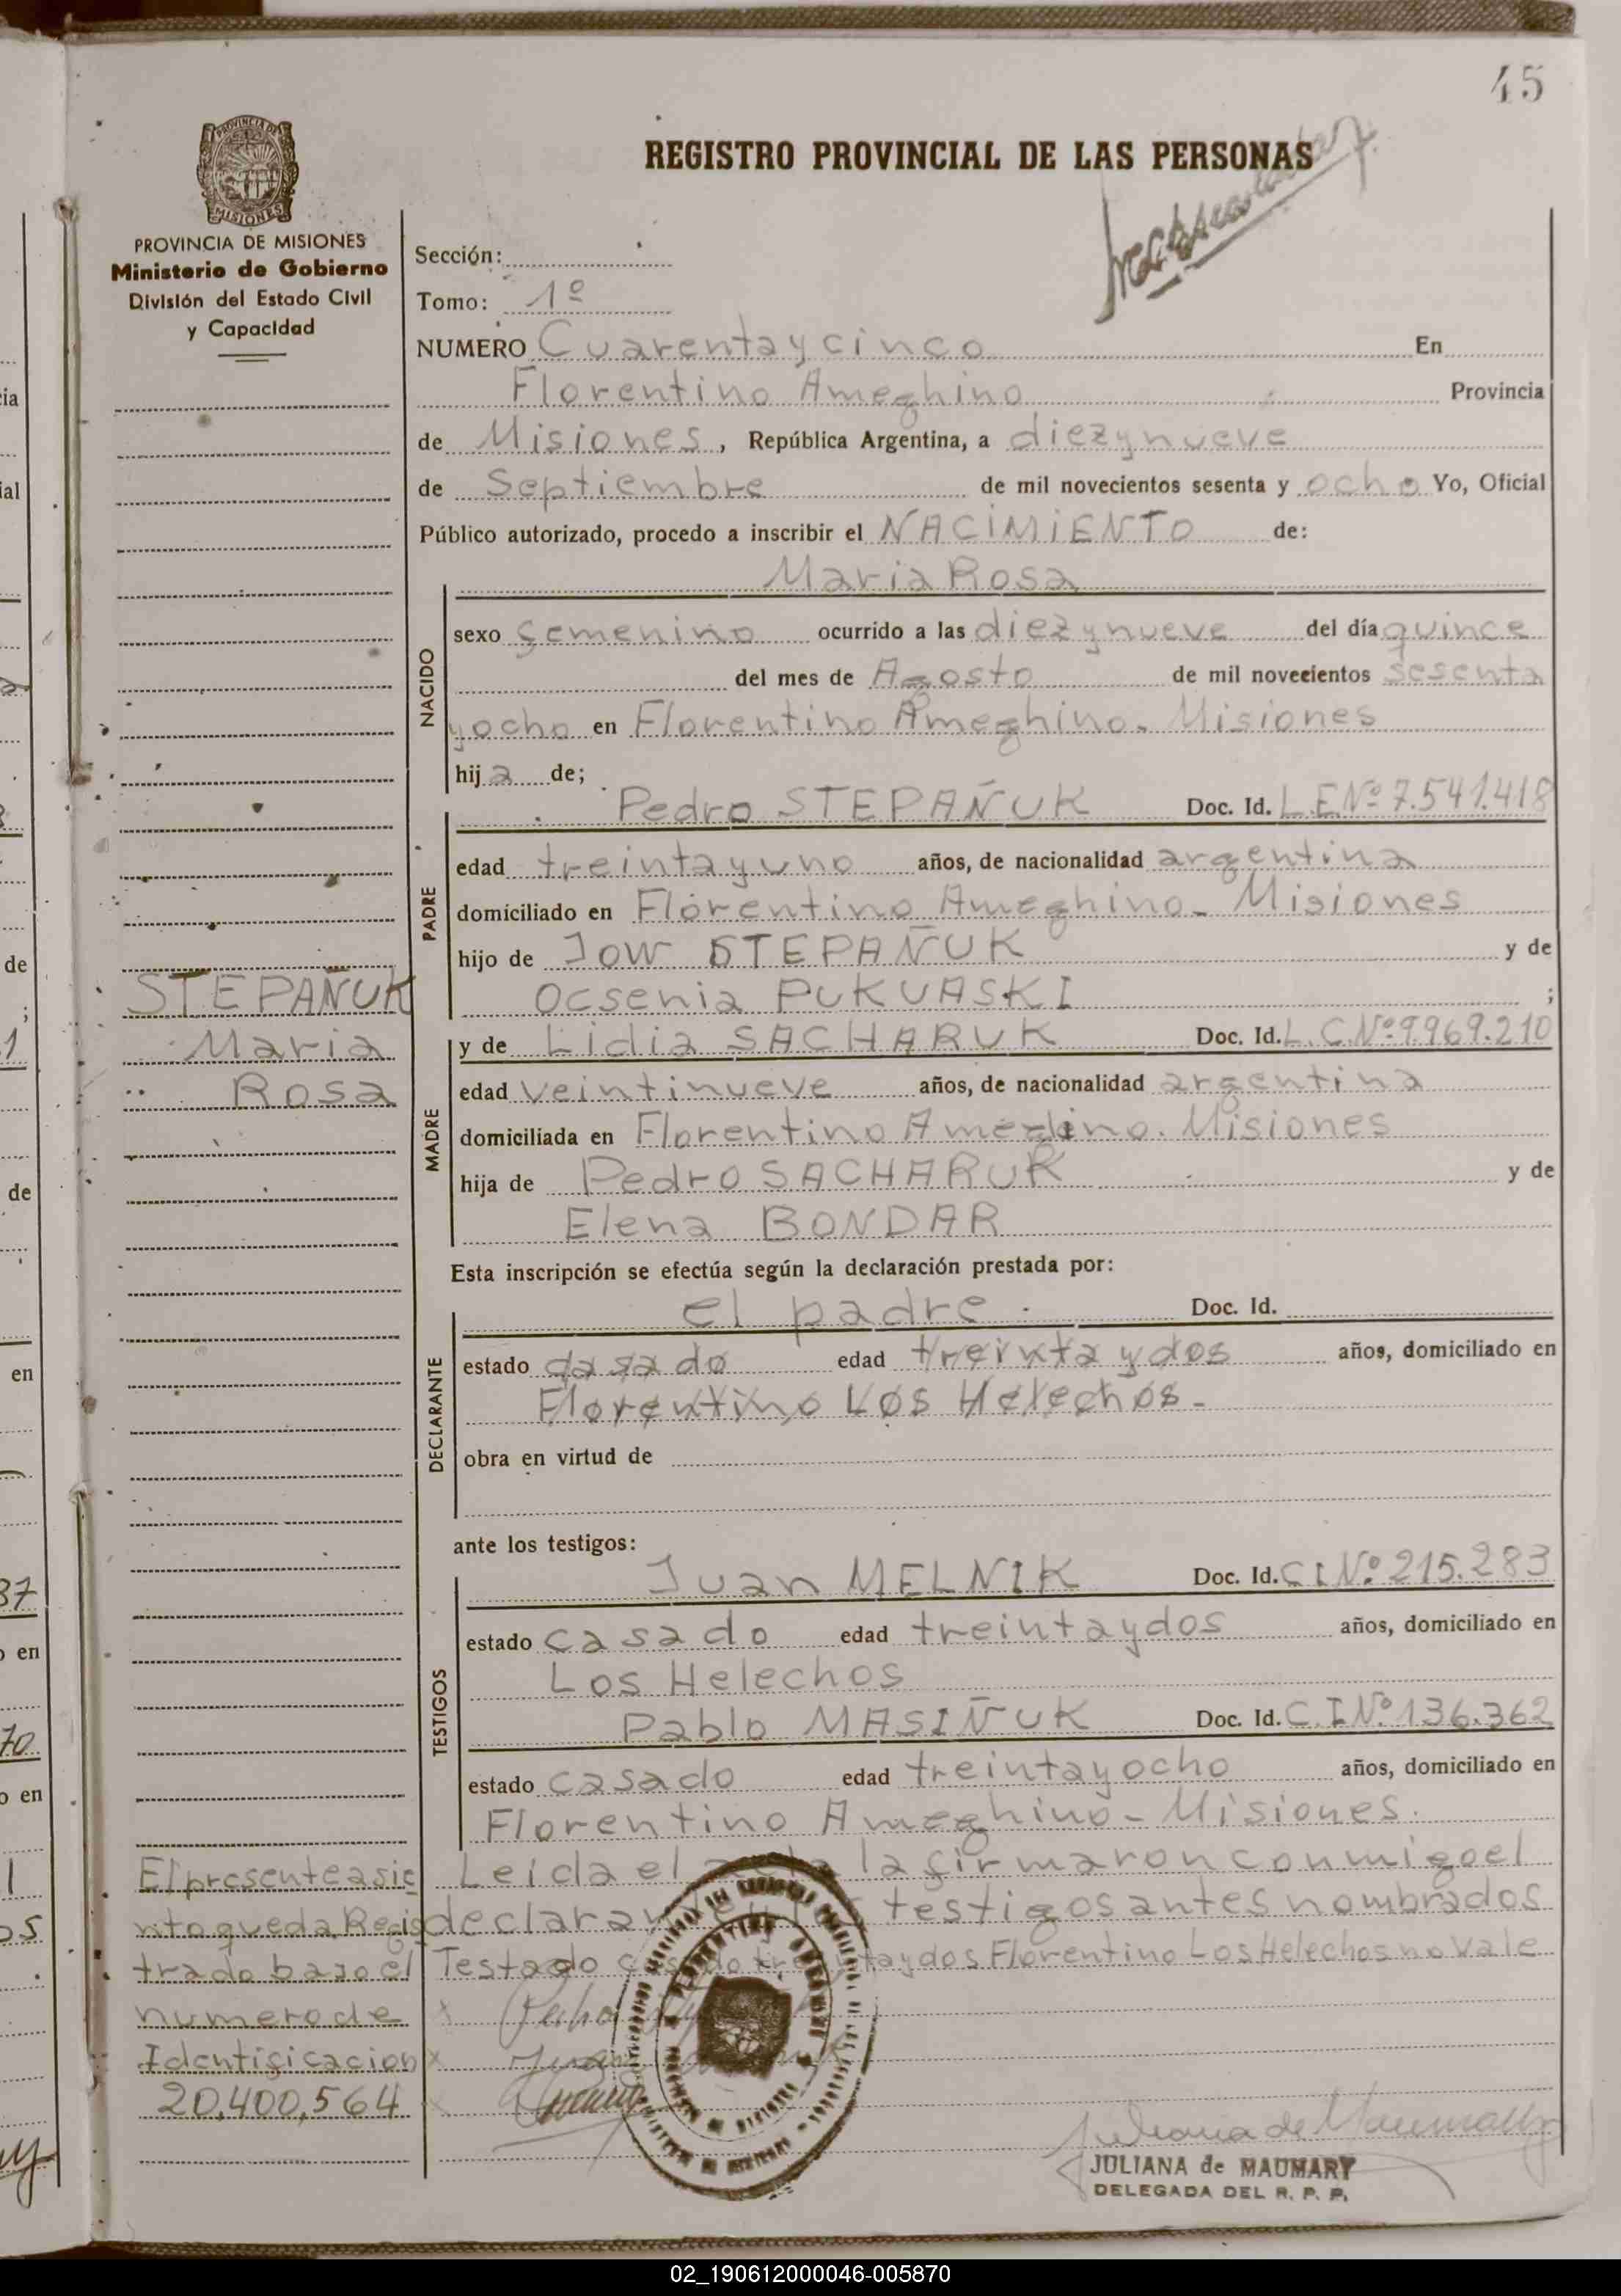 45
PROVINCIA DE
MISIONES
REGISTRO PROVINCIAL DE LAS PERSONAS
PROVINCIA DE MISIONES
Ministerio de Gobierno
División del Estado Civil
y Capacidad
Sección:
Tomo: 1º
NUMERO Cuarenta y cinco En
Florentino Ameghino Provincia
de Misiones, República Argentina, a diez y nueve
de Septiembre de mil novecientos sesenta y ocho Yo, Oficial
Público autorizado, procedo a inscribir el NACIMIENTO de:
Maria Rosa
NACIDO
sexo femenino ocurrido a las diez y nueve del día quince
del mes de Agosto de mil novecientos sesenta
y ocho en Florentino Ameghino - Misiones
hija de;
Pedro STEPAÑUK Doc. Id. L.E.Nº 7.541.418
PADRE
edad treinta y uno años, de nacionalidad argentina
domiciliado en Florentino Ameghino - Misiones
hijo de Jow STEPAÑUK y de
Ocsenia PUKUASKI ;
STEPAÑUK
Maria
Rosa
y de Lidia SACHARUK Doc. Id. L.C.Nº 9.969.210
MADRE
edad veintinueve años, de nacionalidad argentina
domiciliada en Florentino Ameghino. Misiones
hija de Pedro SACHARUK y de
Elena BONDAR
Esta inscripción se efectúa según la declaración prestada por:
el padre. Doc. Id.
DECLARANTE
estado casado edad treinta y dos años, domiciliado en
Florentino Los Helechos -
obra en virtud de
ante los testigos:
Juan MELNIK Doc. Id. C I Nº 215.283
TESTIGOS
estado casado edad treinta y dos años, domiciliado en
Los Helechos
Pablo MASIÑUK Doc. Id. C.I Nº 136.362
estado casado edad treinta y ocho años, domiciliado en
Florentino Ameghino - Misiones.
Leida el acta la firmaron conmigo el
declarante y los testigos antes nombrados
Testado casado treinta y dos Florentino Los Helechos no vale
El presente asie
nto queda Regis
trado bajo el
numero de
Identificacion
20,400,564
JULIANA de MAUMARY
DELEGADA DEL R. P. P.
02_190612000046-005870